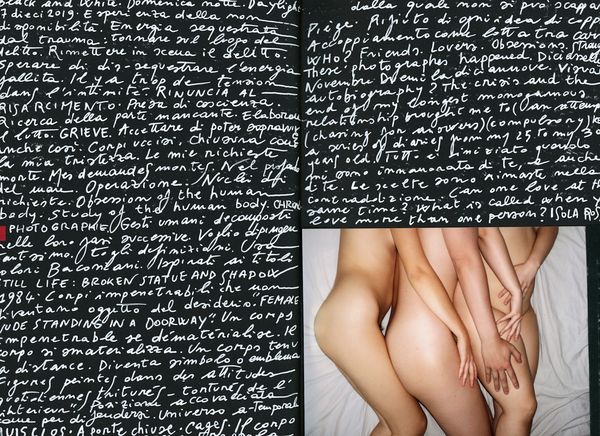 Black and White. Domenica notte. Daylight
7 dicembre 2019. Esperienza della non
disponibilità. Energia sequestrata
dal trauma, tornare sul luogo del
delitto. Rimettere in scena il delitto.
Sperare di dis-sequestrare l'energia
fallita. Il y a trop de tension
dans l'intimité. RINUNCIA AL
RISARCIMENTO. Presa di coscienza.
Ricerca della parte mancante. Elaborare
il lutto. GRIEVE. Accettare di poter sopravvivere
anche così. Corpi uccisi, chiusura con
la mia tristezza. Le mie richieste
morte. Mes demandes mortes. Nel
del mare. Operazione. Nuclei di
richieste. Obsession of the human
body. Study of the human body. CHRONO
PHOTOGRAPHIE. Gesti umani decomposti
nelle loro fasi successive. Voglio dipingere
Togli definizioni.
colori Baconiani. Ispirati ai titoli
STILL LIFE: BROKEN STATUE AND SHADOW
1984. Corpi impenetrabili che non
diventano oggetto del desiderio. "FEMALE
NUDE STANDING IN A DOORWAY". Un corps
impenetrable se dématérialise. Il
corpo si smaterializza. Un corps tenu
a distance. Diventa simbolo o emblema
Figures peintes dans des attitudes
quotidiennes tortures de l'
intérieur. Posizione accovacciata
come per difendersi. Universo a-temporale
HUIS CLOS. A porte chiuse. Cages. Il corpo
dalla quale non si può scappare
Piège. Rifiuto di ogni idea di coppia
Accoppiamento come lotta tra
WHO? Friends. Lovers. Obsessions.
These photographs happened. Diciassette
Novembre Duemiladiciannove. Visual
autobiography? The crisis and the
end of my longest monogamous
relationship brought me to (an attempt
(chasing for answers) (compulsively)
a series of diaries from my 25 to my 30
years old. Tutto è iniziato quando
sono innamorata di te, e anche
di te. Le scelte sono rimaste nella
contraddizione. Can one love at the
same time? What is called when you
love more than one person? ISOLA